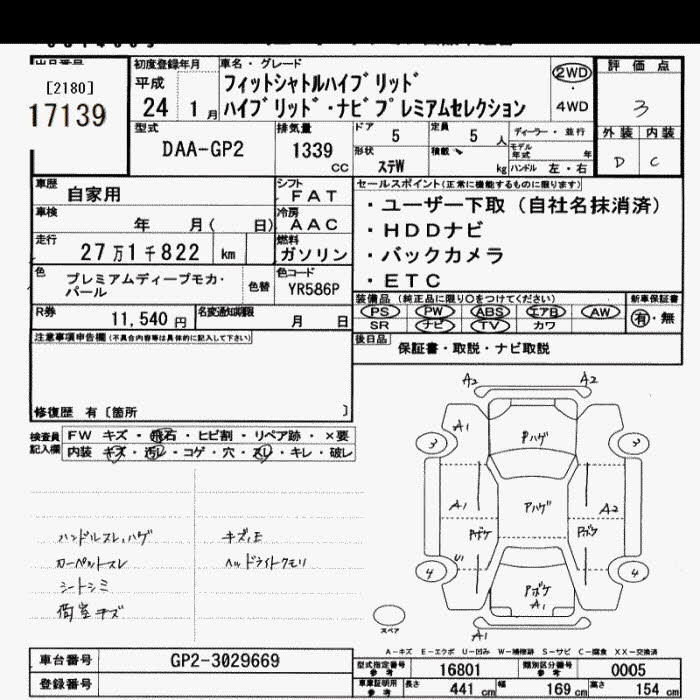 出品番号
[2180]
17139
初度登録年月
平成
24 1 月
車名・グレード
フィットシャトルハイブリッド
ハイブリッド・ナビプレミアムセレクション
2WD
4WD
評価点
3
外装 内装
D C
型式
DAA-GP2
排気量
1339
CC
ドア
5
定員
5 人
ディーラー・並行
形状
ステW
積載
kg
モデル年式 年
ハンドル 左・右
車歴
自家用
シフト
FAT
車検
年 月( 日)
冷房
AAC
走行
27万1千822 km
燃料
ガソリン
色
プレミアムディープモカ・パール
色替
色コード
YR586P
R券
11,540 円
名変通知期限
月 日
セールスポイント(正常に機能するものに限ります)
・ユーザー下取(自社名抹消済)
・HDDナビ
・バックカメラ
・ETC
装備品 (純正品に限り○をつけてください)
PS PW ABS エアB AW
SR ナビ TV カワ
新車保証書
有・無
後日品
保証書・取説・ナビ取説
注意事項申告欄(不具合内容等は具体的に記入して下さい)
修復歴 有〔箇所 〕
検査員記入欄
FW キズ・飛石・ヒビ割・リペア跡・×要
内装 キズ・汚レ・コゲ・穴・スレ・キレ・破レ
ハンドルスレ,ハゲ
カーペットスレ
シートシミ
荷室キズ
キズ,E
ヘッドライトクモリ
A2 A2
A1
Pハゲ
3 3
A1
Pハゲ
A2
Pボケ
Pボケ
U1
4 4
Pボケ
A1
スペア
A1
A-キズ E-エクボ U-凹み W-補修跡 S-サビ C-腐食 XX-交換済
車台番号
GP2-3029669
登録番号
型式指定番号 参考
16801
類別区分番号 参考
0005
車庫証明用 参考
長さ 441 cm
幅 169 cm
高さ 154 cm